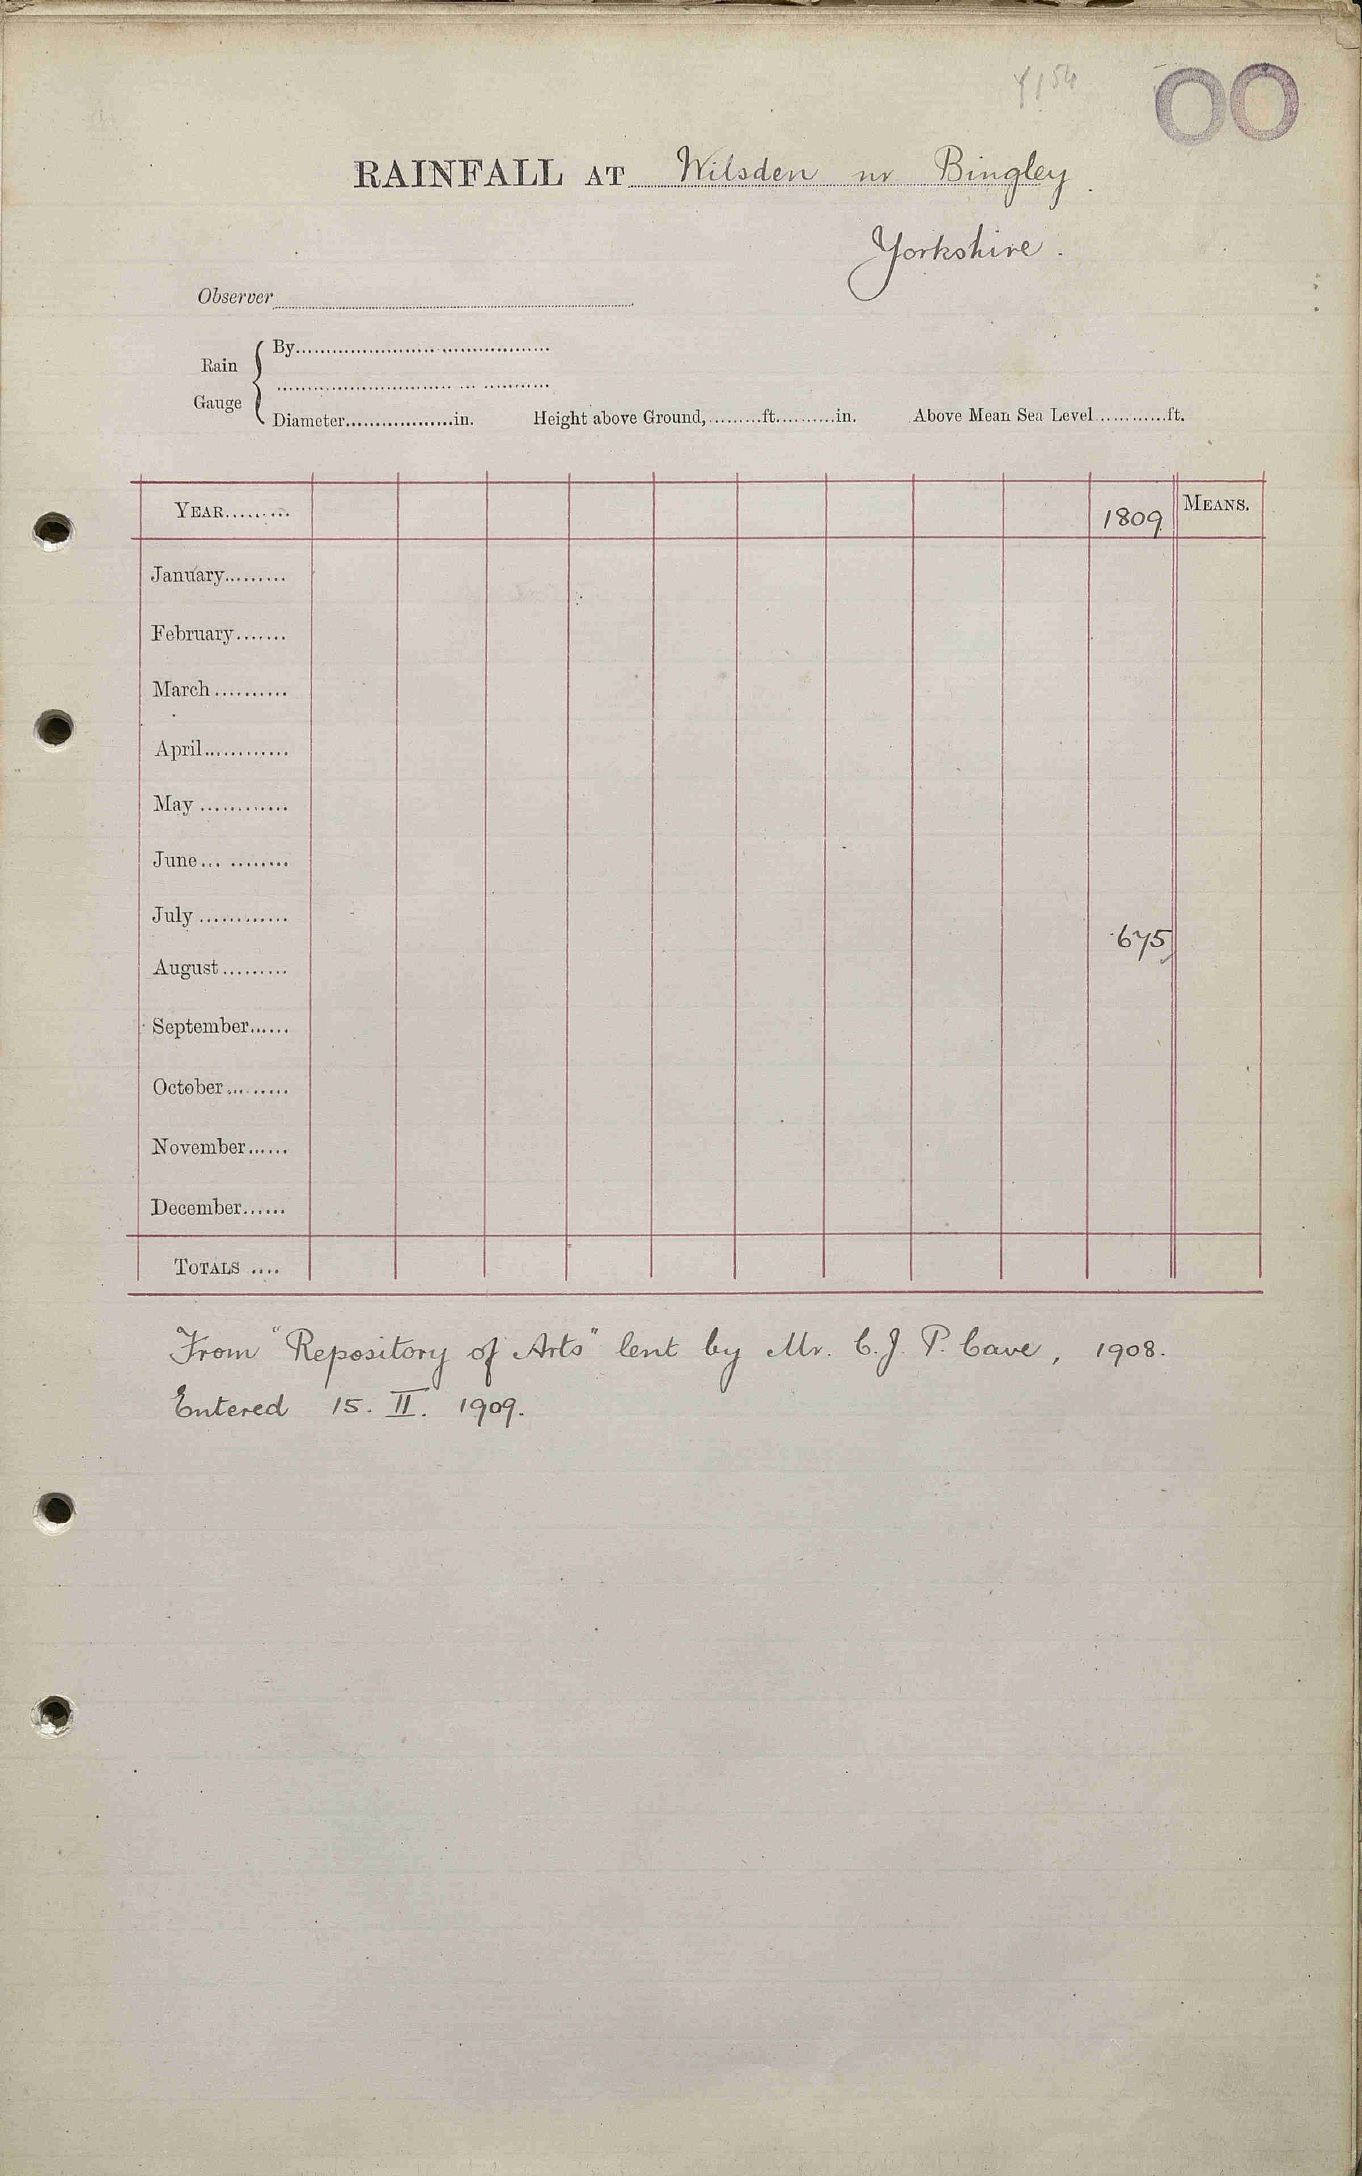 Y154
OO
RAINFALL AT Wilsden nr Bingley.
Yorkshire.
Observer
Rain Gauge { By
Diameter..................in. Height above Ground,.........ft..........in. Above Mean Sea Level............ft.
YEAR......... 1809 MEANS.
January.........
February.......
March..........
April............
May............
June... ........
July............
·675
August.........
September......
October.........
November......
December......
TOTALS ....
From "Repository of Arts" lent by Mr. C. J. P. Cave, 1908.
Entered 15. II. 1909.